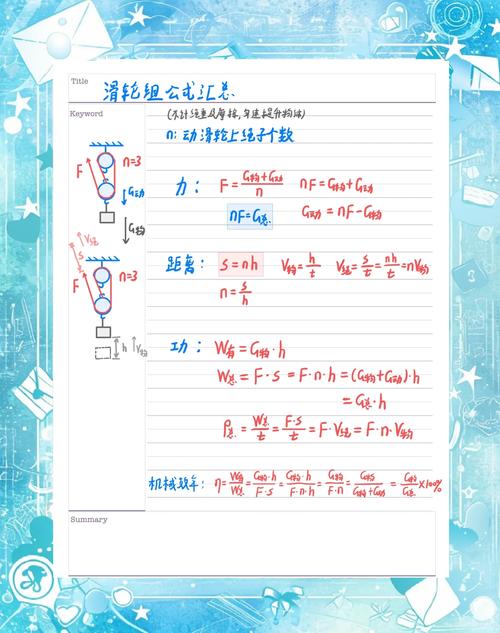 Title
滑轮组公式汇总
Keyword
(不计绳重及摩擦,匀速提升物体)
n:动滑轮上绳子个数
F
n=3
G动
G物
力: F=(G物+G动)/n nF=G物+G动
nF=G总 G动=nF-G物
s
V绳
F
n=3
h
V物
距离: s=nh V物=h/t V绳=s/t=nh/t=nV物
n=s/h
功: W有=G物·h
W总=F·s=F·n·h=(G物+G动)·h
=G总·h
P总=W总/t=F·s/t=F·V绳=F·n·V物
机械效率: η=W有/W总=G物·h/F·s=G物·h/F·n·h=G物/F·n=G物/(G物+G动)=G物/G总×100%
Summary